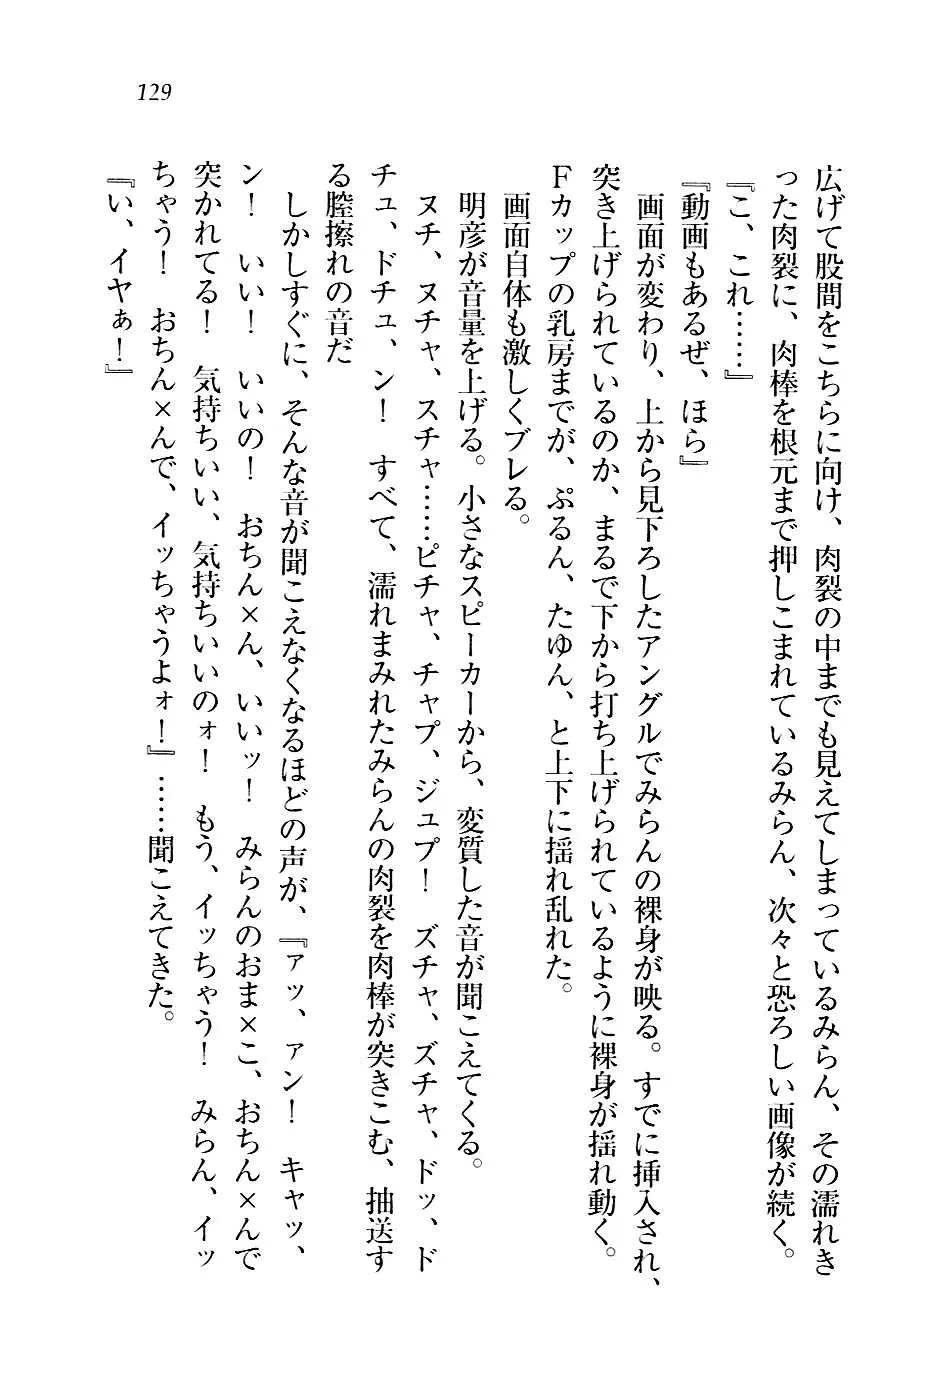 129
広げて股間をこちらに向け、肉裂の中までも見えてしまっているみらん、その濡れき
った肉裂に、肉棒を根元まで押しこまれているみらん、次々と恐ろしい画像が続く。
『こ、これ……』
『動画もあるぜ、ほら』
画面が変わり、上から見下ろしたアングルでみらんの裸身が映る。すでに挿入され、
突き上げられているのか、まるで下から打ち上げられているように裸身が揺れ動く。
Ｆカップの乳房までが、ぷるん、たゆん、と上下に揺れ乱れた。
画面自体も激しくブレる。
明彦が音量を上げる。小さなスピーカーから、変質した音が聞こえてくる。
ヌチ、ヌチャ、スチャ……ピチャ、チャプ、ジュプ！　ズチャ、ズチャ、ドッ、ド
チュ、ドチュ、ン！　すべて、濡れまみれたみらんの肉裂を肉棒が突きこむ、抽送す
る膣擦れの音だ
しかしすぐに、そんな音が聞こえなくなるほどの声が、『アッ、アン！　キャッ、
ン！　いい！　いいの！　おちん×ん、いいッ！　みらんのおま×こ、おちん×んで
突かれてる！　気持ちいい、気持ちいいのォ！　もう、イッちゃう！　みらん、イッ
ちゃう！　おちん×んで、イッちゃうよォ！』……聞こえてきた。
『い、イヤぁ！』